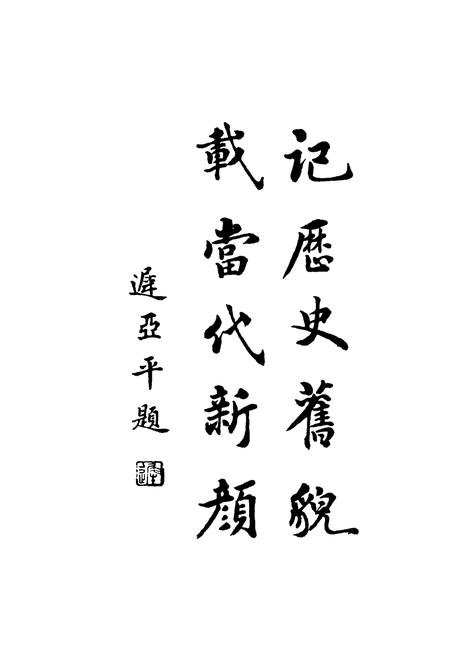 记歷史舊貌
載當代新顔
遲亞平題